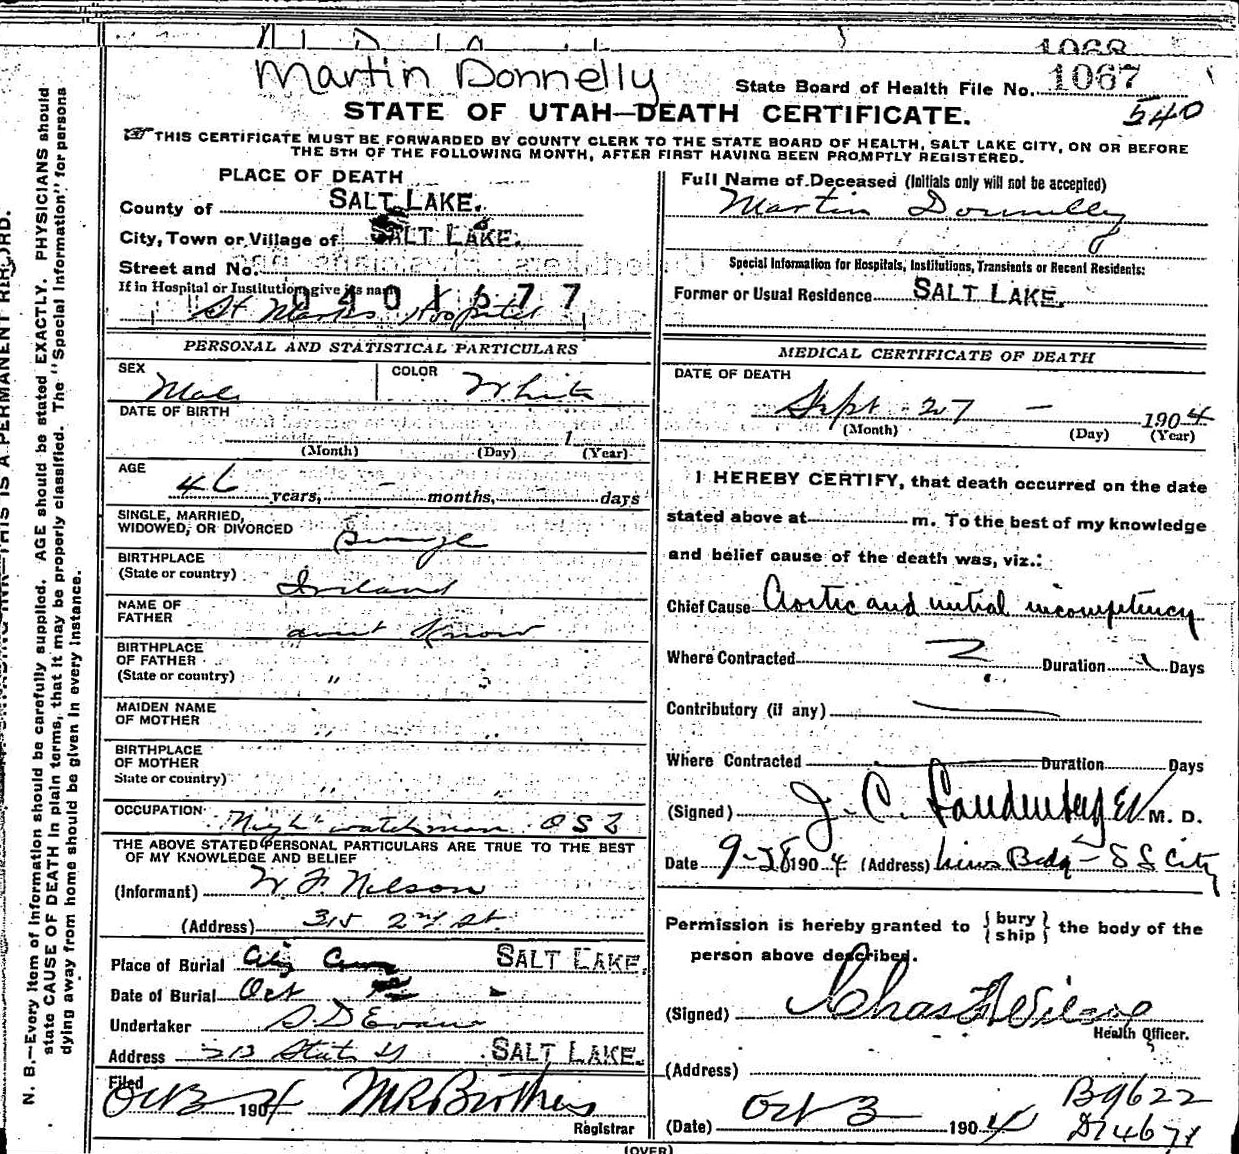 1068
Martin Donnelly
State Board of Health File No. 1067
540
STATE OF UTAH—DEATH CERTIFICATE.
THIS CERTIFICATE MUST BE FORWARDED BY COUNTY CLERK TO THE STATE BOARD OF HEALTH, SALT LAKE CITY, ON OR BEFORE
THE 5TH OF THE FOLLOWING MONTH, AFTER FIRST HAVING BEEN PROMPTLY REGISTERED.
PLACE OF DEATH
County of SALT LAKE.
City, Town or Village of SALT LAKE.
Street and No.
If in Hospital or Institution, give its name
0401677
St Marks Hospital
Full Name of Deceased (Initials only will not be accepted)
Martin Donnelly
Special Information for Hospitals, Institutions, Transients or Recent Residents:
Former or Usual Residence SALT LAKE.
PERSONAL AND STATISTICAL PARTICULARS
SEX Male
COLOR White
DATE OF BIRTH
1
(Month) (Day) (Year)
AGE
46 years, - months, - days
SINGLE, MARRIED,
WIDOWED, OR DIVORCED Single
BIRTHPLACE
(State or country) Ireland
NAME OF
FATHER dont Know
BIRTHPLACE
OF FATHER
(State or country) "
MAIDEN NAME
OF MOTHER
BIRTHPLACE
OF MOTHER
State or country)
OCCUPATION Night watchman O S L
THE ABOVE STATED PERSONAL PARTICULARS ARE TRUE TO THE BEST
OF MY KNOWLEDGE AND BELIEF
(Informant) W F Nelson
(Address) 315 2nd St.
Place of Burial City Cem SALT LAKE.
Date of Burial Oct
Undertaker S D Evans
Address 213 State St SALT LAKE.
Filed
Oct 3 1904 M R Brothers
Registrar
MEDICAL CERTIFICATE OF DEATH
DATE OF DEATH
Sept 27 — 1904
(Month) (Day) (Year)
I HEREBY CERTIFY, that death occurred on the date
stated above at m. To the best of my knowledge
and belief cause of the death was, viz.:
Chief Cause Aortic and mitral incompetency
Where Contracted ? Duration Days
Contributory (if any) —
Where Contracted — Duration Days
(Signed) J. C. Landenberger M. D.
Date 9-28 1904 (Address) Bldg - S L City
Permission is hereby granted to { bury ship } the body of the
person above described.
(Signed) Chas F Wilcox
Health Officer.
(Address)
(Date) Oct 3 1904
B9622
D14671
(OVER)
N. B.—Every item of information should be carefully supplied. AGE should be stated EXACTLY. PHYSICIANS should
state CAUSE OF DEATH in plain terms, that it may be properly classified. The "Special Information" for persons
dying away from home should be given in every instance.
THIS IS A PERMANENT RECORD.